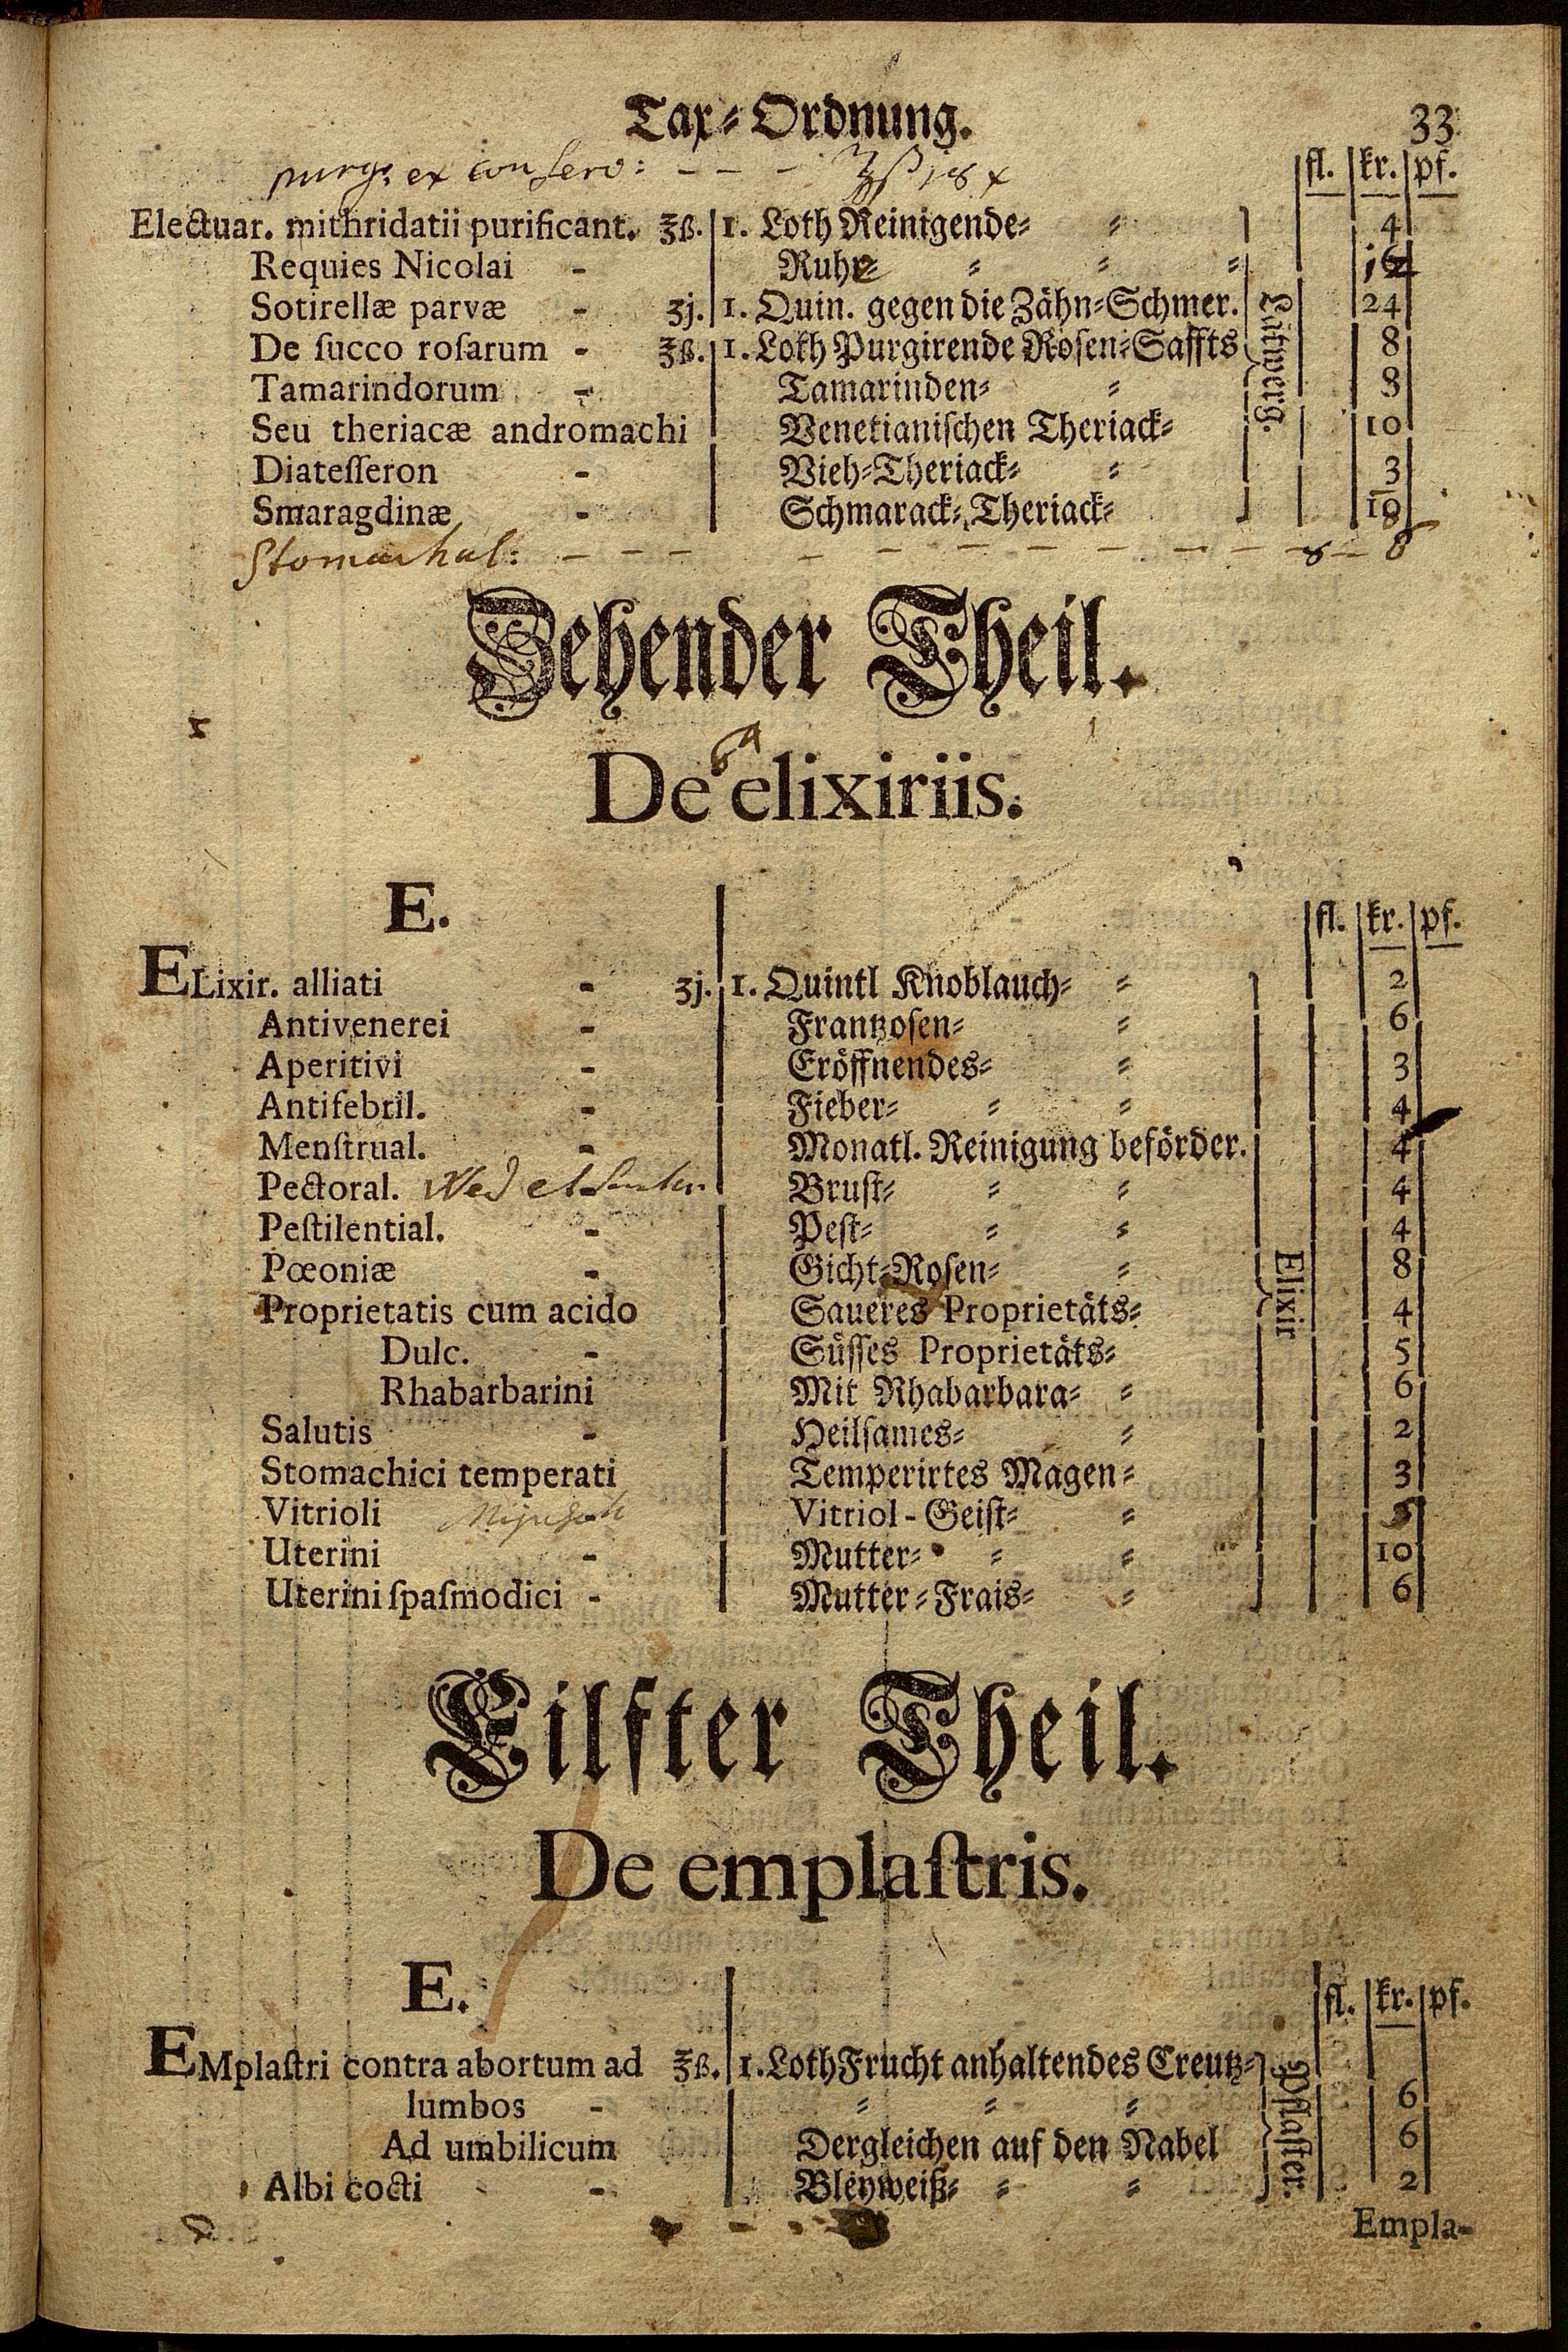 Tax⸗Ordnung. 33
purg: ex conserv: - - - ʒß 18 x
fl. kr. pf.
Electuar. mithridatii purificant. ℥ß. 1. Loth Reinigende⸗ ⸗ 4
Requies Nicolai - Ruhe⸗ ⸗ ⸗ ⸗
Sotirellæ parvæ - ʒj. 1. Quin. gegen die Zähn⸗Schmer. 24
De ſucco roſarum - ℥ß. 1. Loth Purgirende Roſen⸗Saffts 8
Tamarindorum - Tamarinden⸗ ⸗ 8
Seu theriacæ andromachi Venetianiſchen Theriack⸗ 10
Diateſſeron - Vieh⸗Theriack⸗ ⸗ 3
Smaragdinæ - Schmarack⸗Theriack⸗ 10
Lattwerg.
Stomachal: - - - - - - - - - - - 8 - 8
Zehender Theil.
De elixiriis.
E.
fl. kr. pf.
ELixir. alliati - ʒj. 1. Quintl Knoblauch⸗ ⸗ 2
Antivenerei - Frantzoſen⸗ ⸗ 6
Aperitivi - Eröffnendes⸗ ⸗ 3
Antifebril. - Fieber⸗ ⸗ ⸗ 4
Menſtrual. - Monatl. Reinigung beförder. 4
Pectoral. Wed et Bruſt⸗ ⸗ ⸗ 4
Peſtilential. - Peſt⸗ ⸗ ⸗ 4
Pœoniæ - Gicht⸗Roſen⸗ ⸗ 8
Proprietatis cum acido Saueres Proprietäts⸗ 4
Dulc. - Süſſes Proprietäts⸗ 5
Rhabarbarini Mit Rhabarbara⸗ ⸗ 6
Salutis - Heilſames⸗ ⸗ 2
Stomachici temperati Temperirtes Magen⸗ 3
Vitrioli Vitriol-Geiſt⸗ ⸗
Uterini - Mutter⸗ ⸗ ⸗ 10
Uterini ſpaſmodici - Mutter⸗Frais⸗ ⸗ 6
Elixir
Eilfter Theil.
De emplaſtris.
E.
fl. kr. pf.
EMplaſtri contra abortum ad ℥ß. 1. Loth Frucht anhaltendes Creutz⸗
lumbos - ⸗ ⸗ ⸗ 6
Ad umbilicum Dergleichen auf den Nabel 6
Albi cocti - Bleyweiß⸗ ⸗ ⸗ 2
Pflaſter.
Empla-